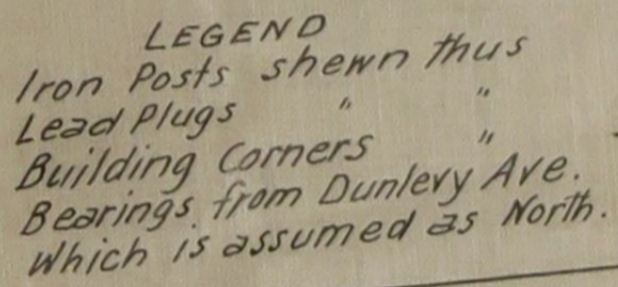 LEGEND
Iron Posts shewn thus
Lead Plugs " "
Building Corners "
Bearings from Dunlevy Ave.
Which is assumed as North.